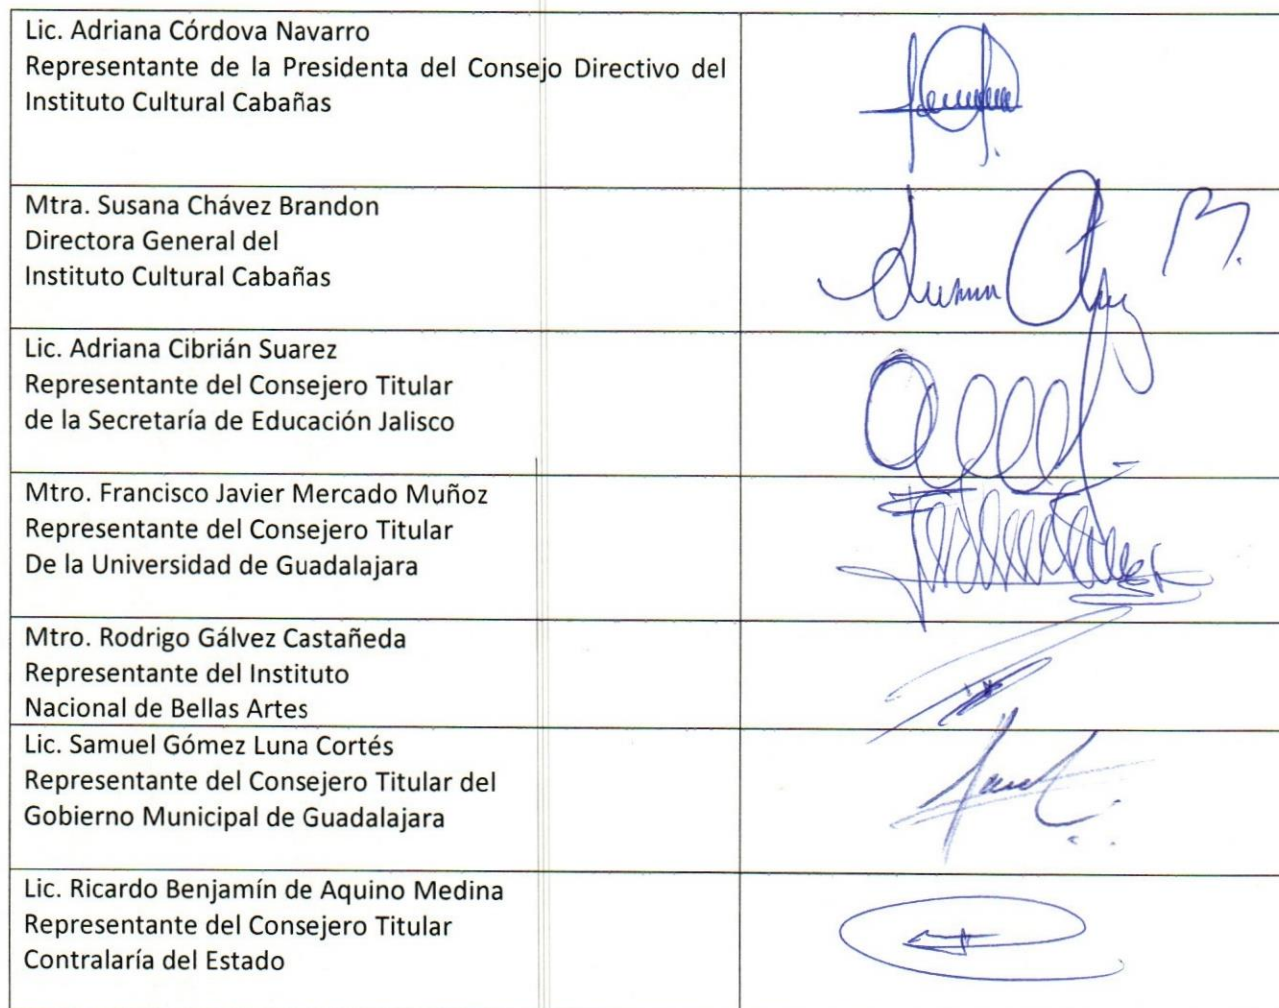 Lic. Adriana Córdova Navarro
Representante de la Presidenta del Consejo Directivo del
Instituto Cultural Cabañas
Mtra. Susana Chávez Brandon
Directora General del
Instituto Cultural Cabañas
Lic. Adriana Cibrián Suarez
Representante del Consejero Titular
de la Secretaría de Educación Jalisco
Mtro. Francisco Javier Mercado Muñoz
Representante del Consejero Titular
De la Universidad de Guadalajara
Mtro. Rodrigo Gálvez Castañeda
Representante del Instituto
Nacional de Bellas Artes
Lic. Samuel Gómez Luna Cortés
Representante del Consejero Titular del
Gobierno Municipal de Guadalajara
Lic. Ricardo Benjamín de Aquino Medina
Representante del Consejero Titular
Contralaría del Estado